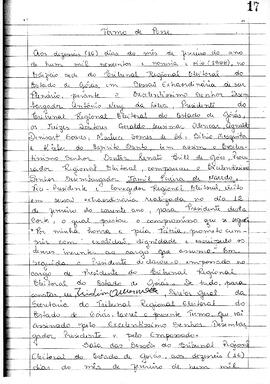 17
Termo de Posse
Aos dezesseis (16) dias do mês de Janeiro do ano
de hum mil novecentos e noventa e
edifício sede do Tribunal Regional Eleitoral do
Estado de Goiás em Sessão Extraordinária de seu
Plenário, perante o Excelentíssimo Senhor Desem-
bargador Antônio da Silva Presidente do
Tribunal Regional Eleitoral do Estado de Goiás,
os Juízes Doutores Geraldo
Gomes de Sá,
e do Espírito Santo, com assim o Excelen-
tíssimo Senhor Doutor de Góis, Procu-
rador Regional Eleitoral, compareceu o Excelentíssimo
Senhor Desembargador
Vice-Presidente e Corregedor Regional Eleitoral, eleito
em sessão extraordinária realizada no dia 12
de Janeiro do corrente ano, para Presidente desta
Corte, o qual prestou o compromisso que se segue:
"Por minha honra e pela Pátria, prometo cum-
prir com exatidão, dignidade e os
deveres inerentes ao cargo que assumo". Em
seguida, o Presidente declarou-o empossado no
cargo de Presidente do Tribunal Regional
Eleitoral do Estado de Goiás. De tudo, para
constar, eu Diretor Geral da
Secretaria do Tribunal Regional Eleitoral do
Estado de Goiás, lavrei o presente Termo, que vai
assinado pelo Excelentíssimo Senhor Desembar-
gador Presidente e pelo Empossado.
Sala das Sessões do Tribunal Regional
Eleitoral do Estado de Goiás, aos dezesseis (16)
dias do mês de Janeiro de hum mil